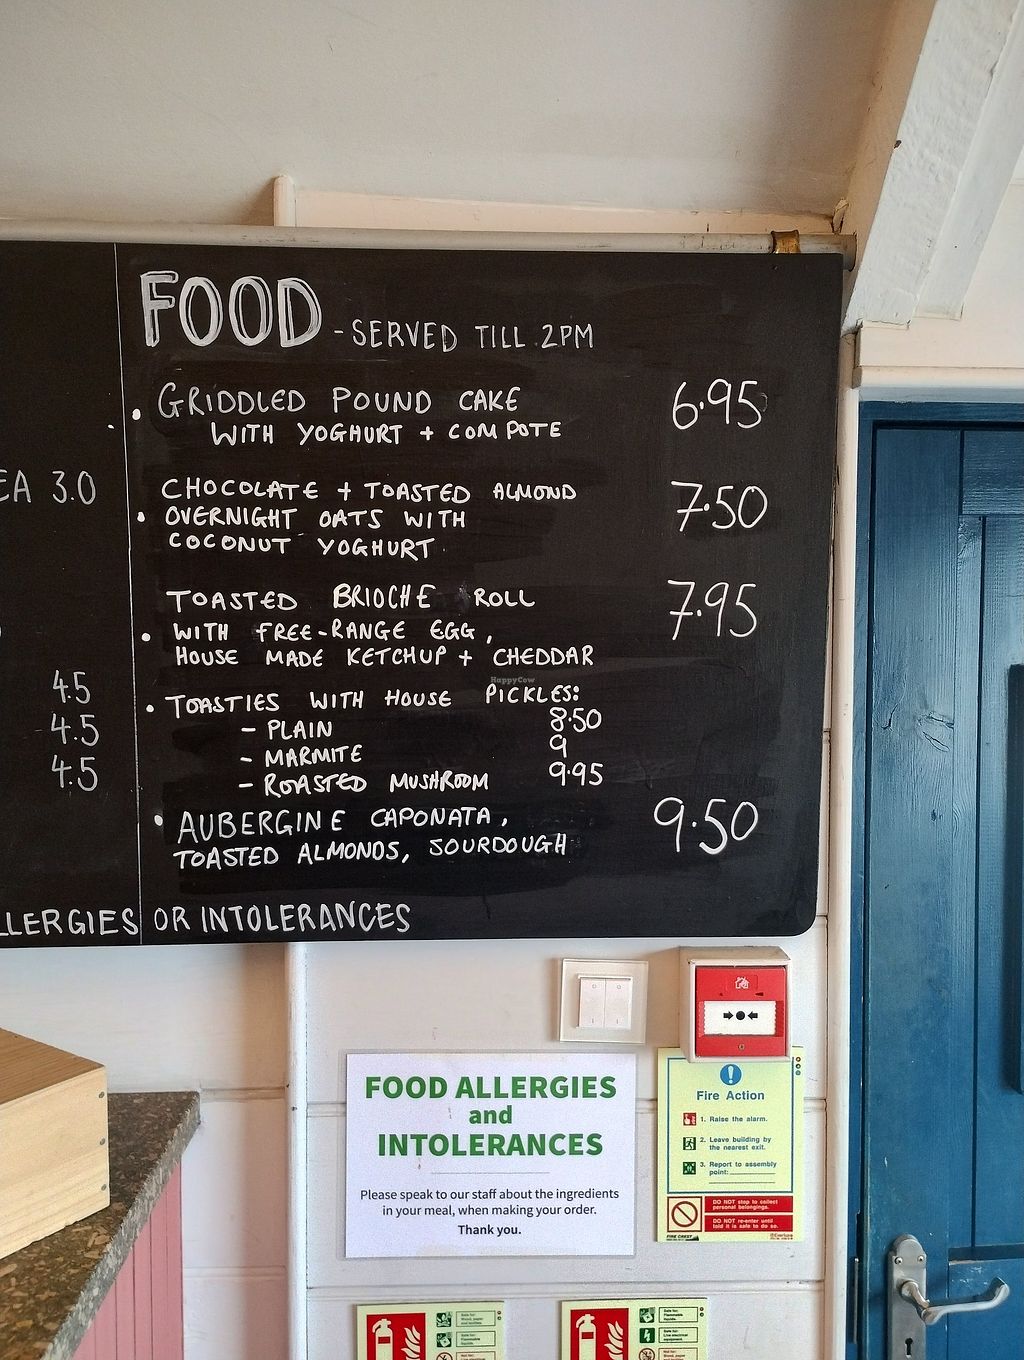 FOOD - SERVED TILL 2PM
• GRIDDLED POUND CAKE 6.95
WITH YOGHURT + COMPOTE
CHOCOLATE + TOASTED ALMOND
• OVERNIGHT OATS WITH 7.50
COCONUT YOGHURT
TOASTED BRIOCHE ROLL 7.95
• WITH FREE-RANGE EGG,
HOUSE MADE KETCHUP + CHEDDAR
• TOASTIES WITH HOUSE PICKLES:
- PLAIN 8.50
- MARMITE 9
- ROASTED MUSHROOM 9.95
• AUBERGINE CAPONATA, 9.50
TOASTED ALMONDS, SOURDOUGH
EA 3.0
4.5
4.5
4.5
LLERGIES OR INTOLERANCES
HappyCow
FOOD ALLERGIES
and
INTOLERANCES
Please speak to our staff about the ingredients
in your meal, when making your order.
Thank you.
Fire Action
1. Raise the alarm.
2. Leave building by
the nearest exit.
3. Report to assembly
point:
DO NOT stop to collect
personal belongings.
DO NOT re-enter until
told it is safe to do so.
FIRE CREST